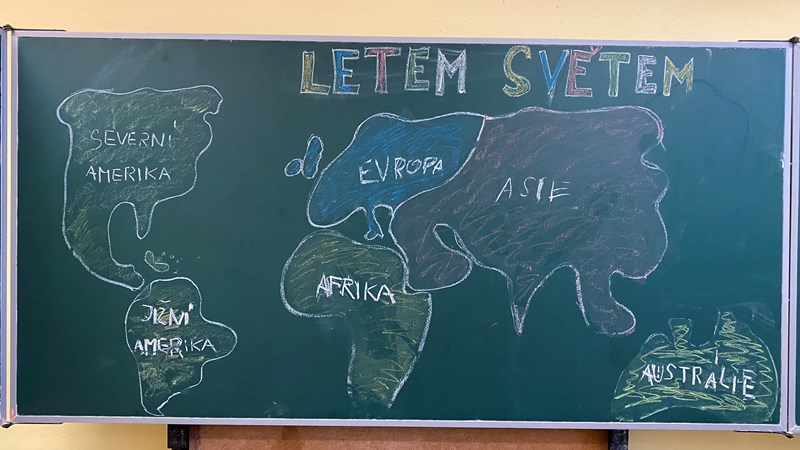 LETEM SVĚTEM
SEVERNÍ
AMERIKA
EVROPA
ASIE
AFRIKA
JIŽNÍ
AMERIKA
AUSTRÁLIE